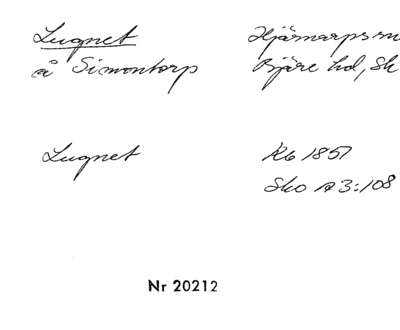 Lugnet
å Simontorp
Hjärnarps sn
Bjäre hd, Sk
Lugnet
Rb 1857
Sko A3:108
Nr 20212